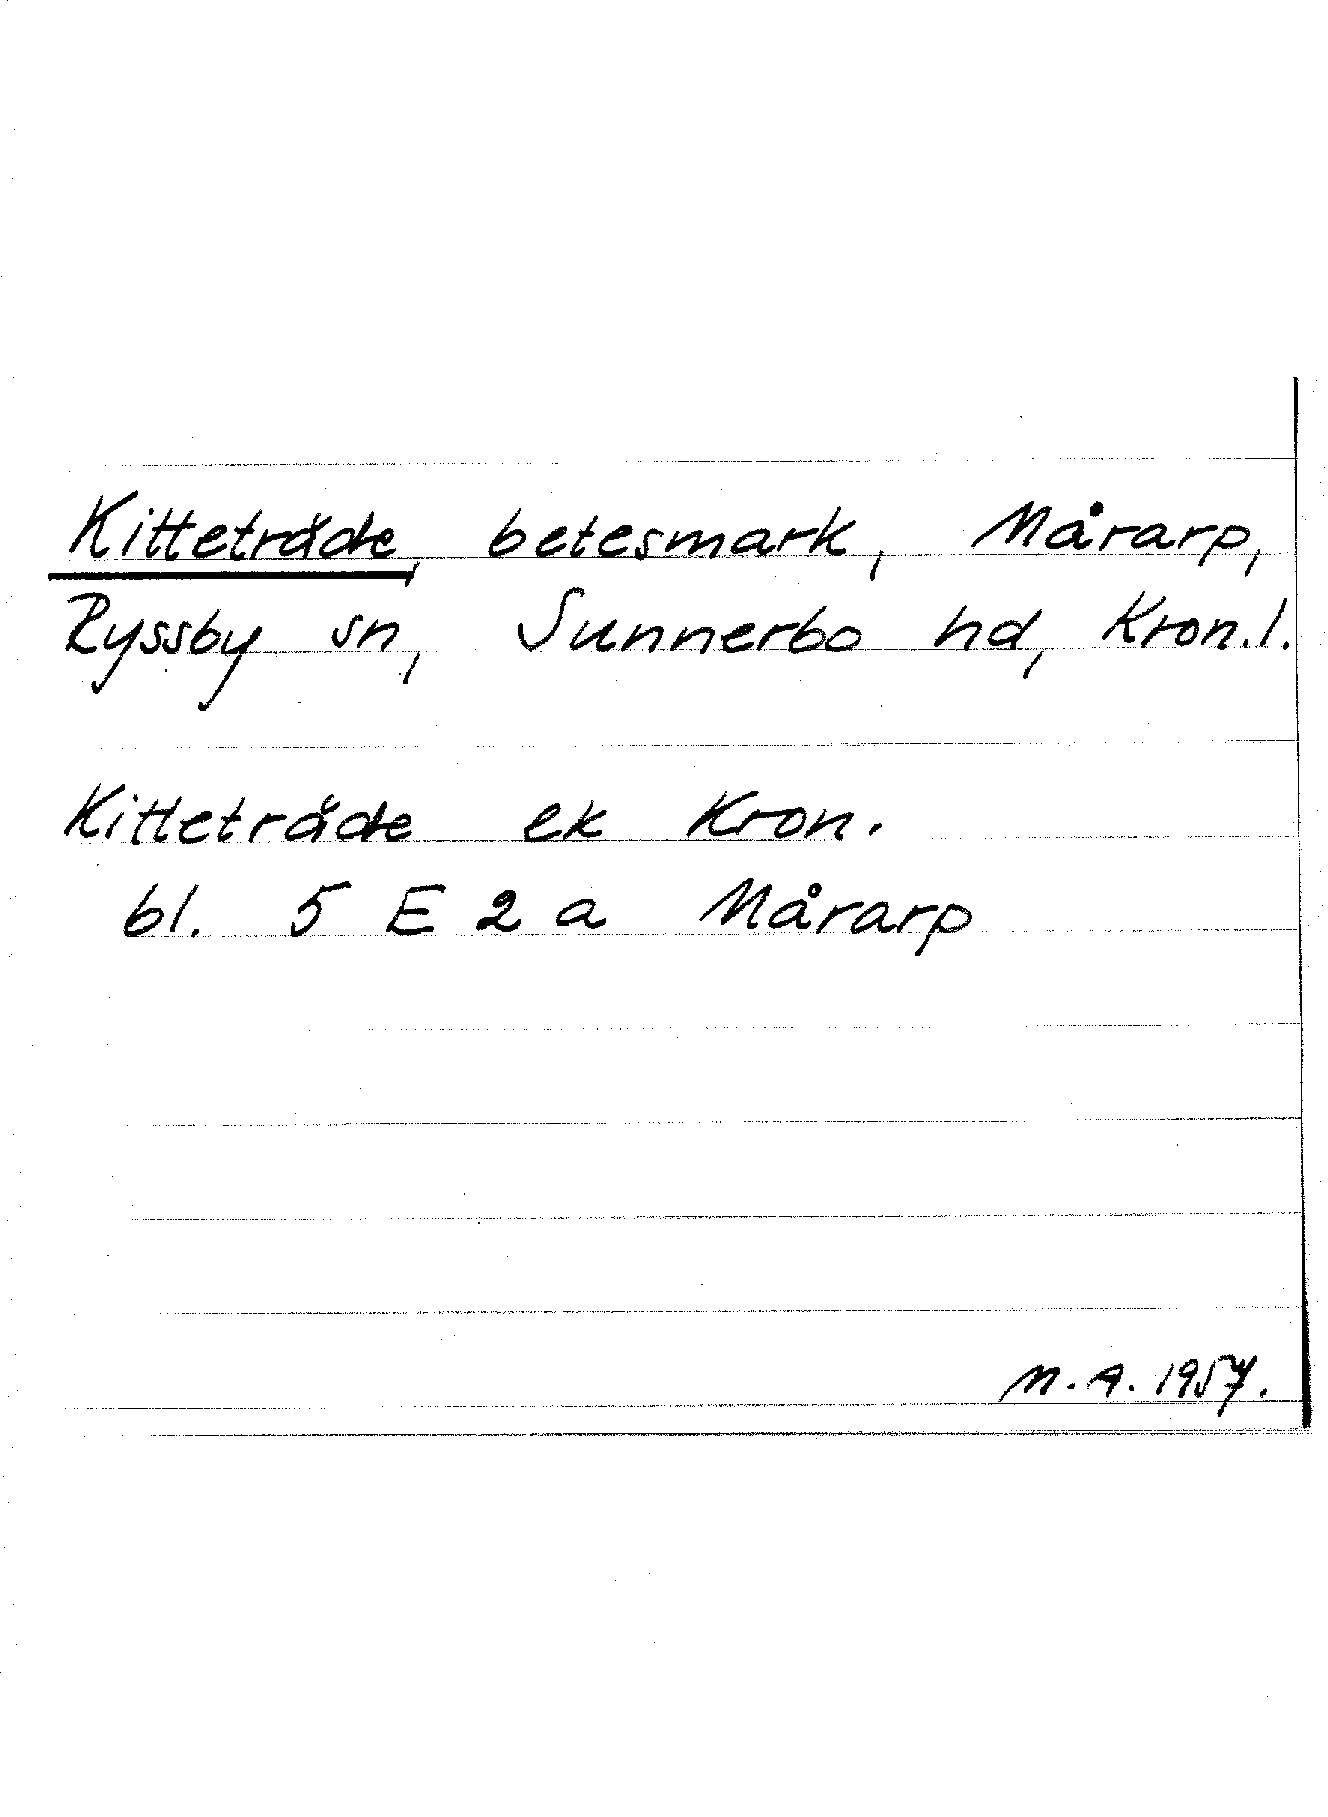 Kitteträde, betesmark, Mårarp,
Ryssby sn, Sunnerbo hd, Kron.l.
Kitteträde ek Kron.
bl. 5 E 2 a Mårarp
M.A. 1957.